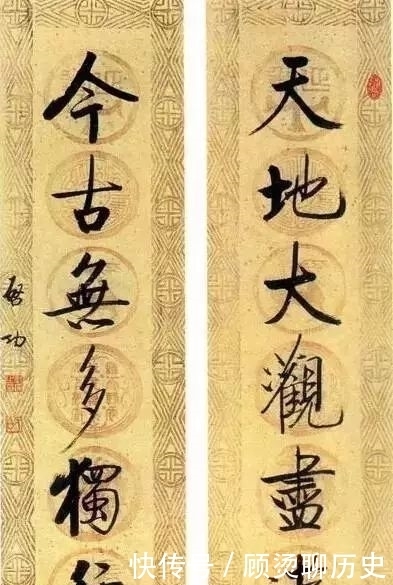 天地大觀盡
今古無多獨行
啟功
快传号/顾烫聊历史